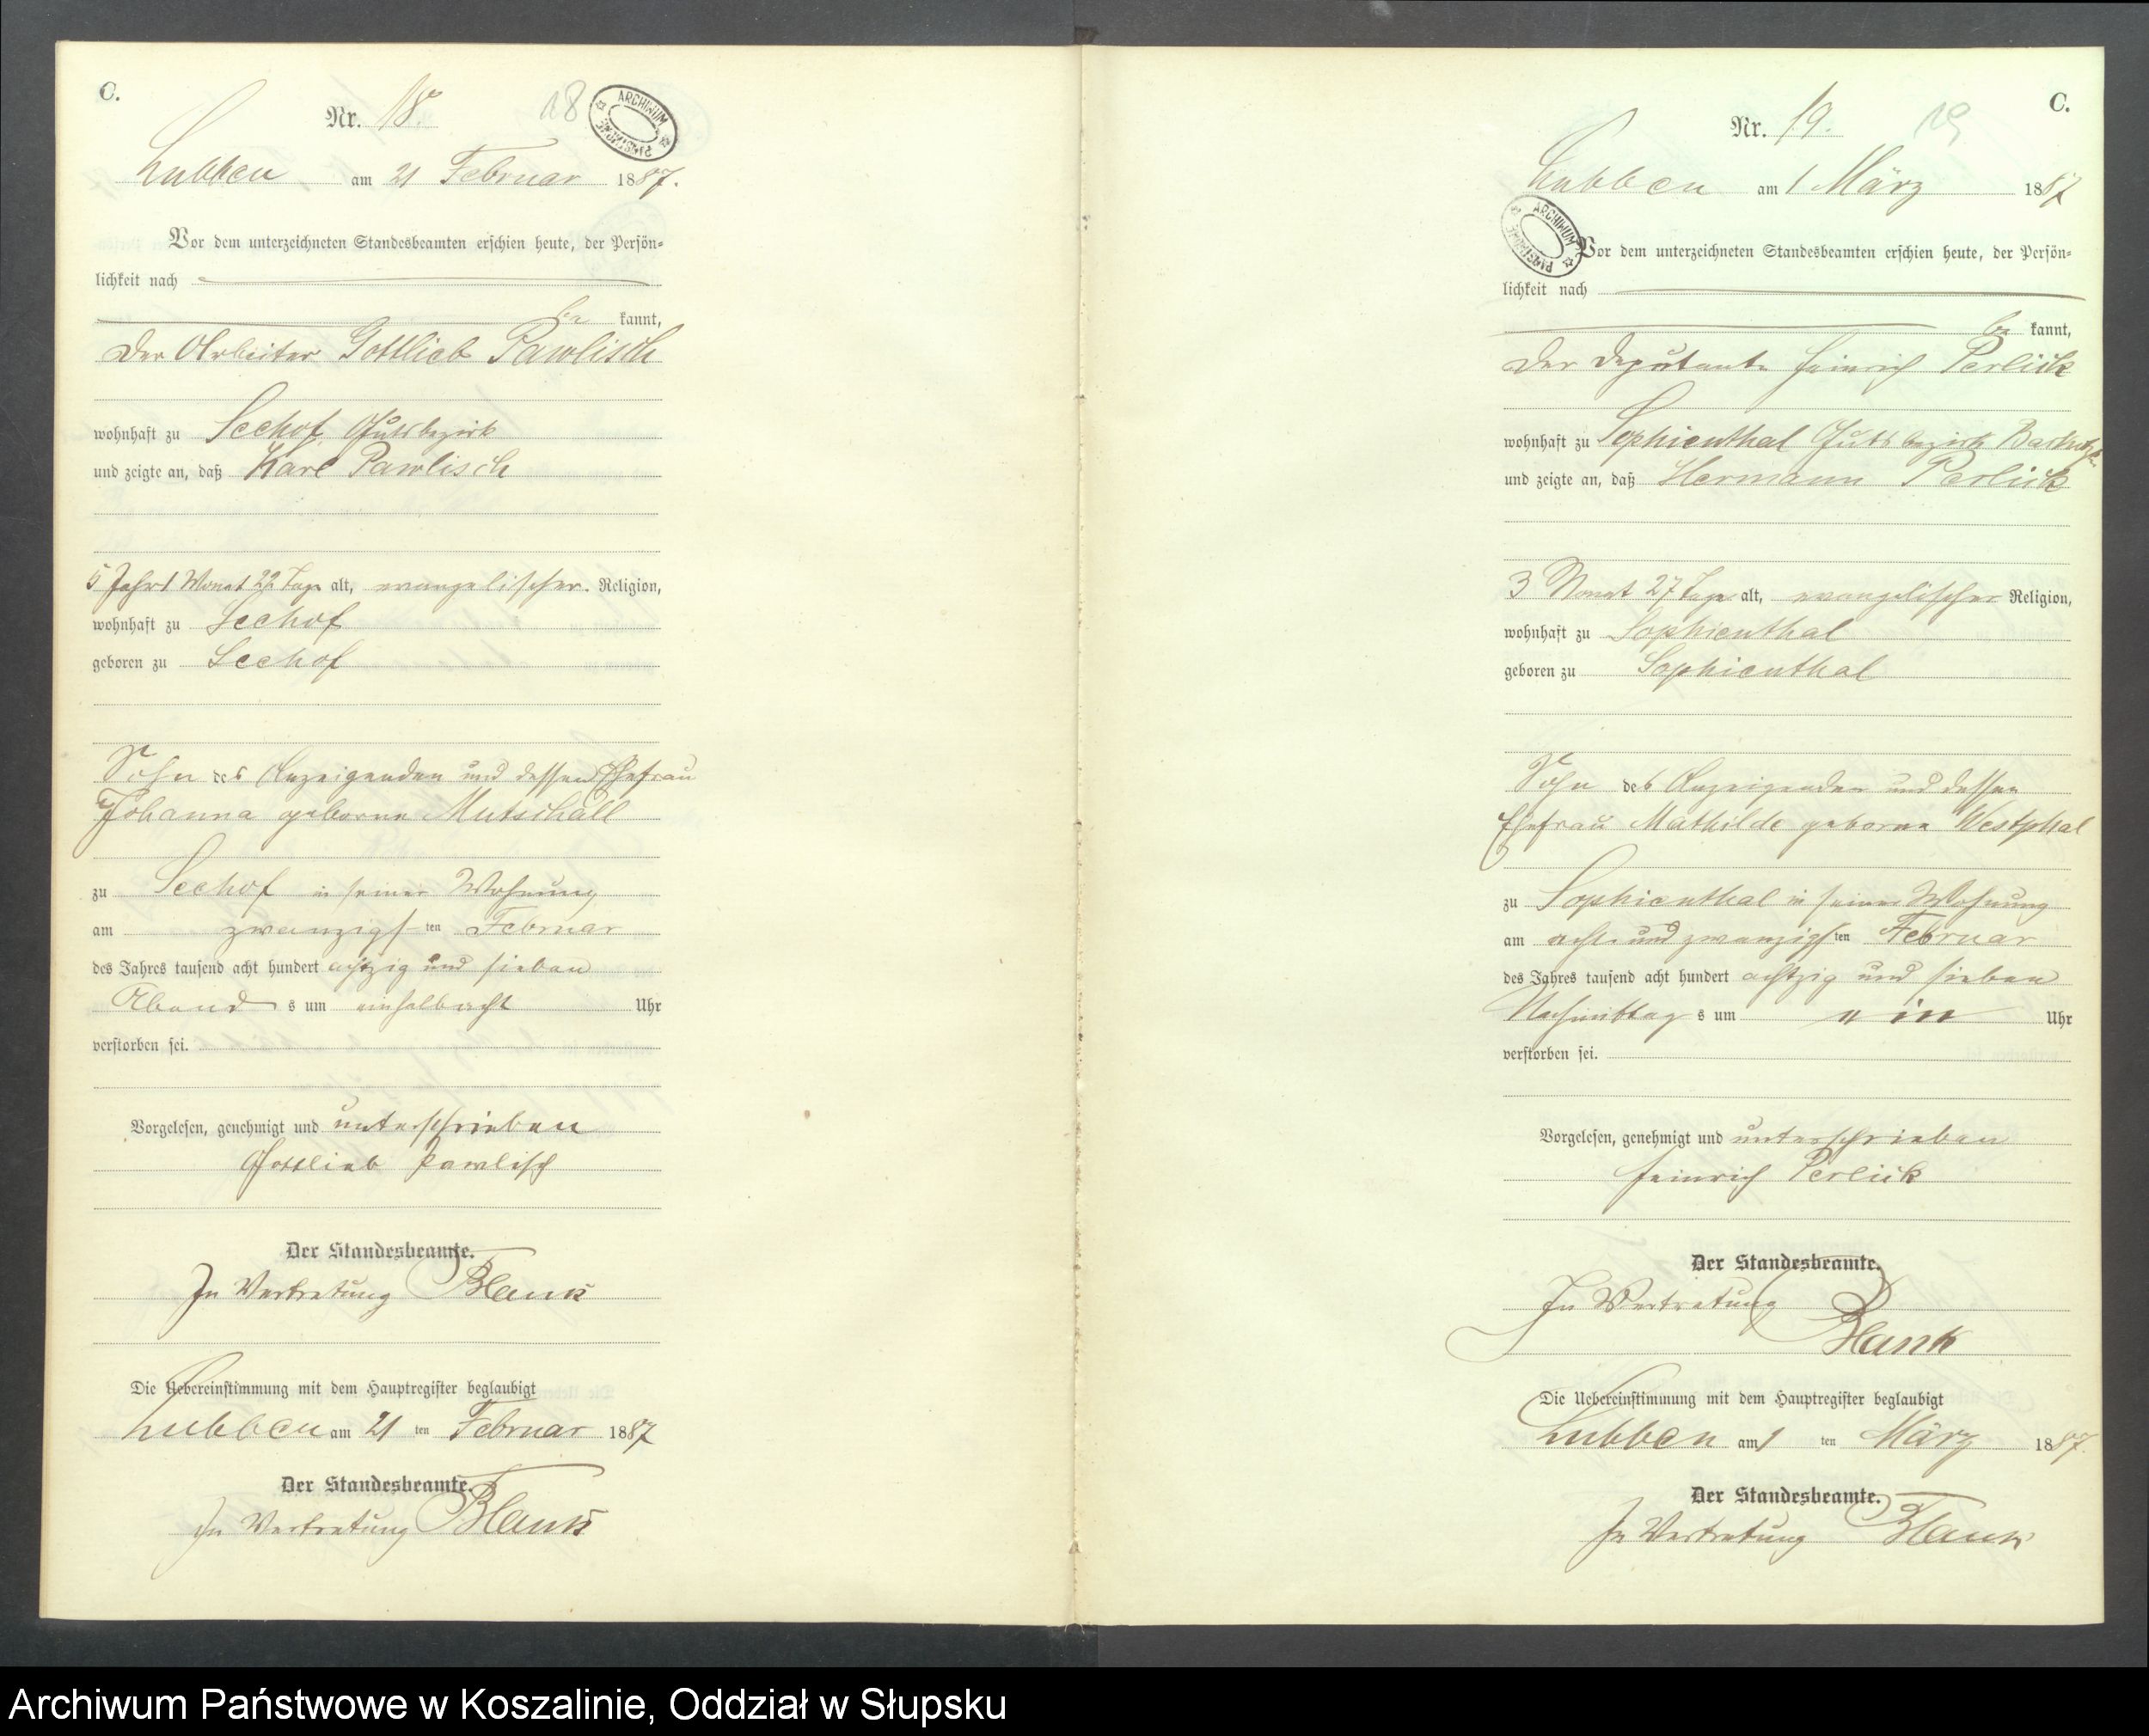 C.
Nr. 18.
18
ARCHIWUM PAŃSTWOWE
Lubben am 21 Februar 1887.
Vor dem unterzeichneten Standesbeamten erschien heute, der Persön-
lichkeit nach
be kannt,
der Arbeiter Gottlieb Pawlisch
wohnhaft zu Seehof, Gutsbezirk
und zeigte an, daß Karl Pawlisch
5 Jahr 1 Monat 22 Tage alt, evangelischer Religion,
wohnhaft zu Seehof
geboren zu Seehof
Sohn des Anzeigenden und dessen Ehefrau
Johanna geborne Mutschall
zu Seehof in seiner Wohnung
am zwanzigsten Februar
des Jahres tausend acht hundert achtzig und sieben
Abend s um einhalbacht Uhr
verstorben sei.
Vorgelesen, genehmigt und unterschrieben
Gottlieb Pawlisch
Der Standesbeamte.
In Vertretung Blank
Die Uebereinstimmung mit dem Hauptregister beglaubigt
Lubben am 21 ten Februar 1887
Der Standesbeamte.
In Vertretung Blank
C.
Nr. 19.
19
Lubben am 1 März 1887
ARCHIWUM PAŃSTWOWE
Vor dem unterzeichneten Standesbeamten erschien heute, der Persön-
lichkeit nach
be kannt,
der Deputante Heinrich Perlick
wohnhaft zu Sophienthal Gutsbezirk
und zeigte an, daß Hermann Perlick
3 Monat 27 Tage alt, evangelischer Religion,
wohnhaft zu Sophienthal
geboren zu Sophienthal
Sohn des Anzeigenden und dessen
Ehefrau Mathilde geborne Westphal
zu Sophienthal in seiner Wohnung
am acht und zwanzigsten Februar
des Jahres tausend acht hundert achtzig und sieben
Nachmittag s um ein Uhr
verstorben sei.
Vorgelesen, genehmigt und unterschrieben
Heinrich Perlick
Der Standesbeamte.
In Vertretung
Blank
Die Uebereinstimmung mit dem Hauptregister beglaubigt
Lubben am 1 ten März 1887.
Der Standesbeamte.
In Vertretung Blank
Archiwum Państwowe w Koszalinie, Oddział w Słupsku